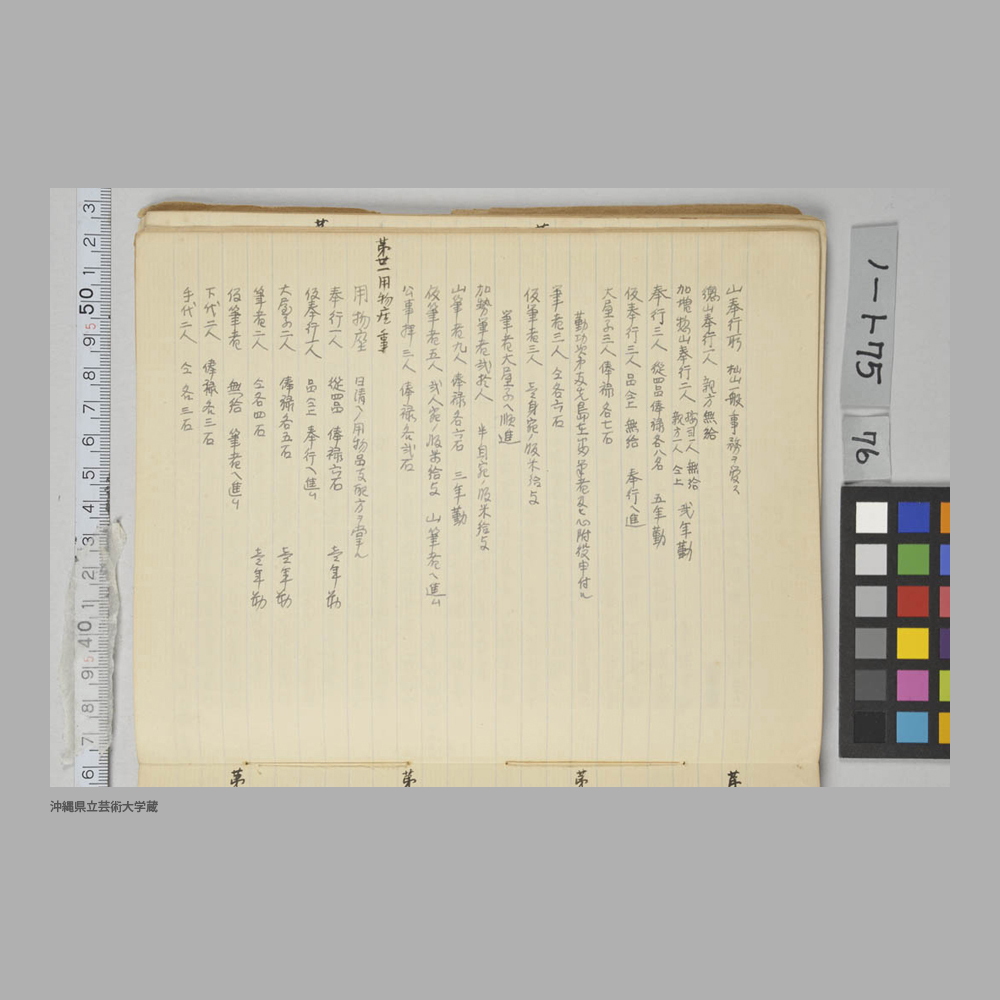 山奉行所 杣山一般事務ヲ管ス
惣山奉行一人 親方 無給
加増惣山奉行二人 按司一人 無給 親方一人 仝上 弐年勤
奉行三人 従四品俸禄各八名 五年勤
仮奉行三人 品仝上 無給 奉行ヘ進
大屋子三人 俸禄各七石
筆者三人 仝各六石
仮筆者三人 壱身宛ノ飯米給与
筆者大屋子ヘ順進
加勢筆者弐拾人 半自宛ノ飯米給与
山筆者九人 俸禄各六石 三年勤
仮筆者五人 弐人宛ノ飯米給与 山筆者ヘ進ム
公事拝三人 俸禄各弐石
第廿一 用物座事
用物座 日清ノ用物品支配方ヲ掌ル
奉行一人 従四品 俸禄六石 壱年勤
仮奉行一人 品仝上 奉行ヘ進ム
大屋子二人 俸禄各五石 壱年勤
筆者二人 仝各四石 壱年勤
仮筆者 無給 筆者ヘ進ム
下代二人 俸禄各三石
手代二人 仝各三石
第
第
第
第
ノート75
76
沖縄県立芸術大学蔵